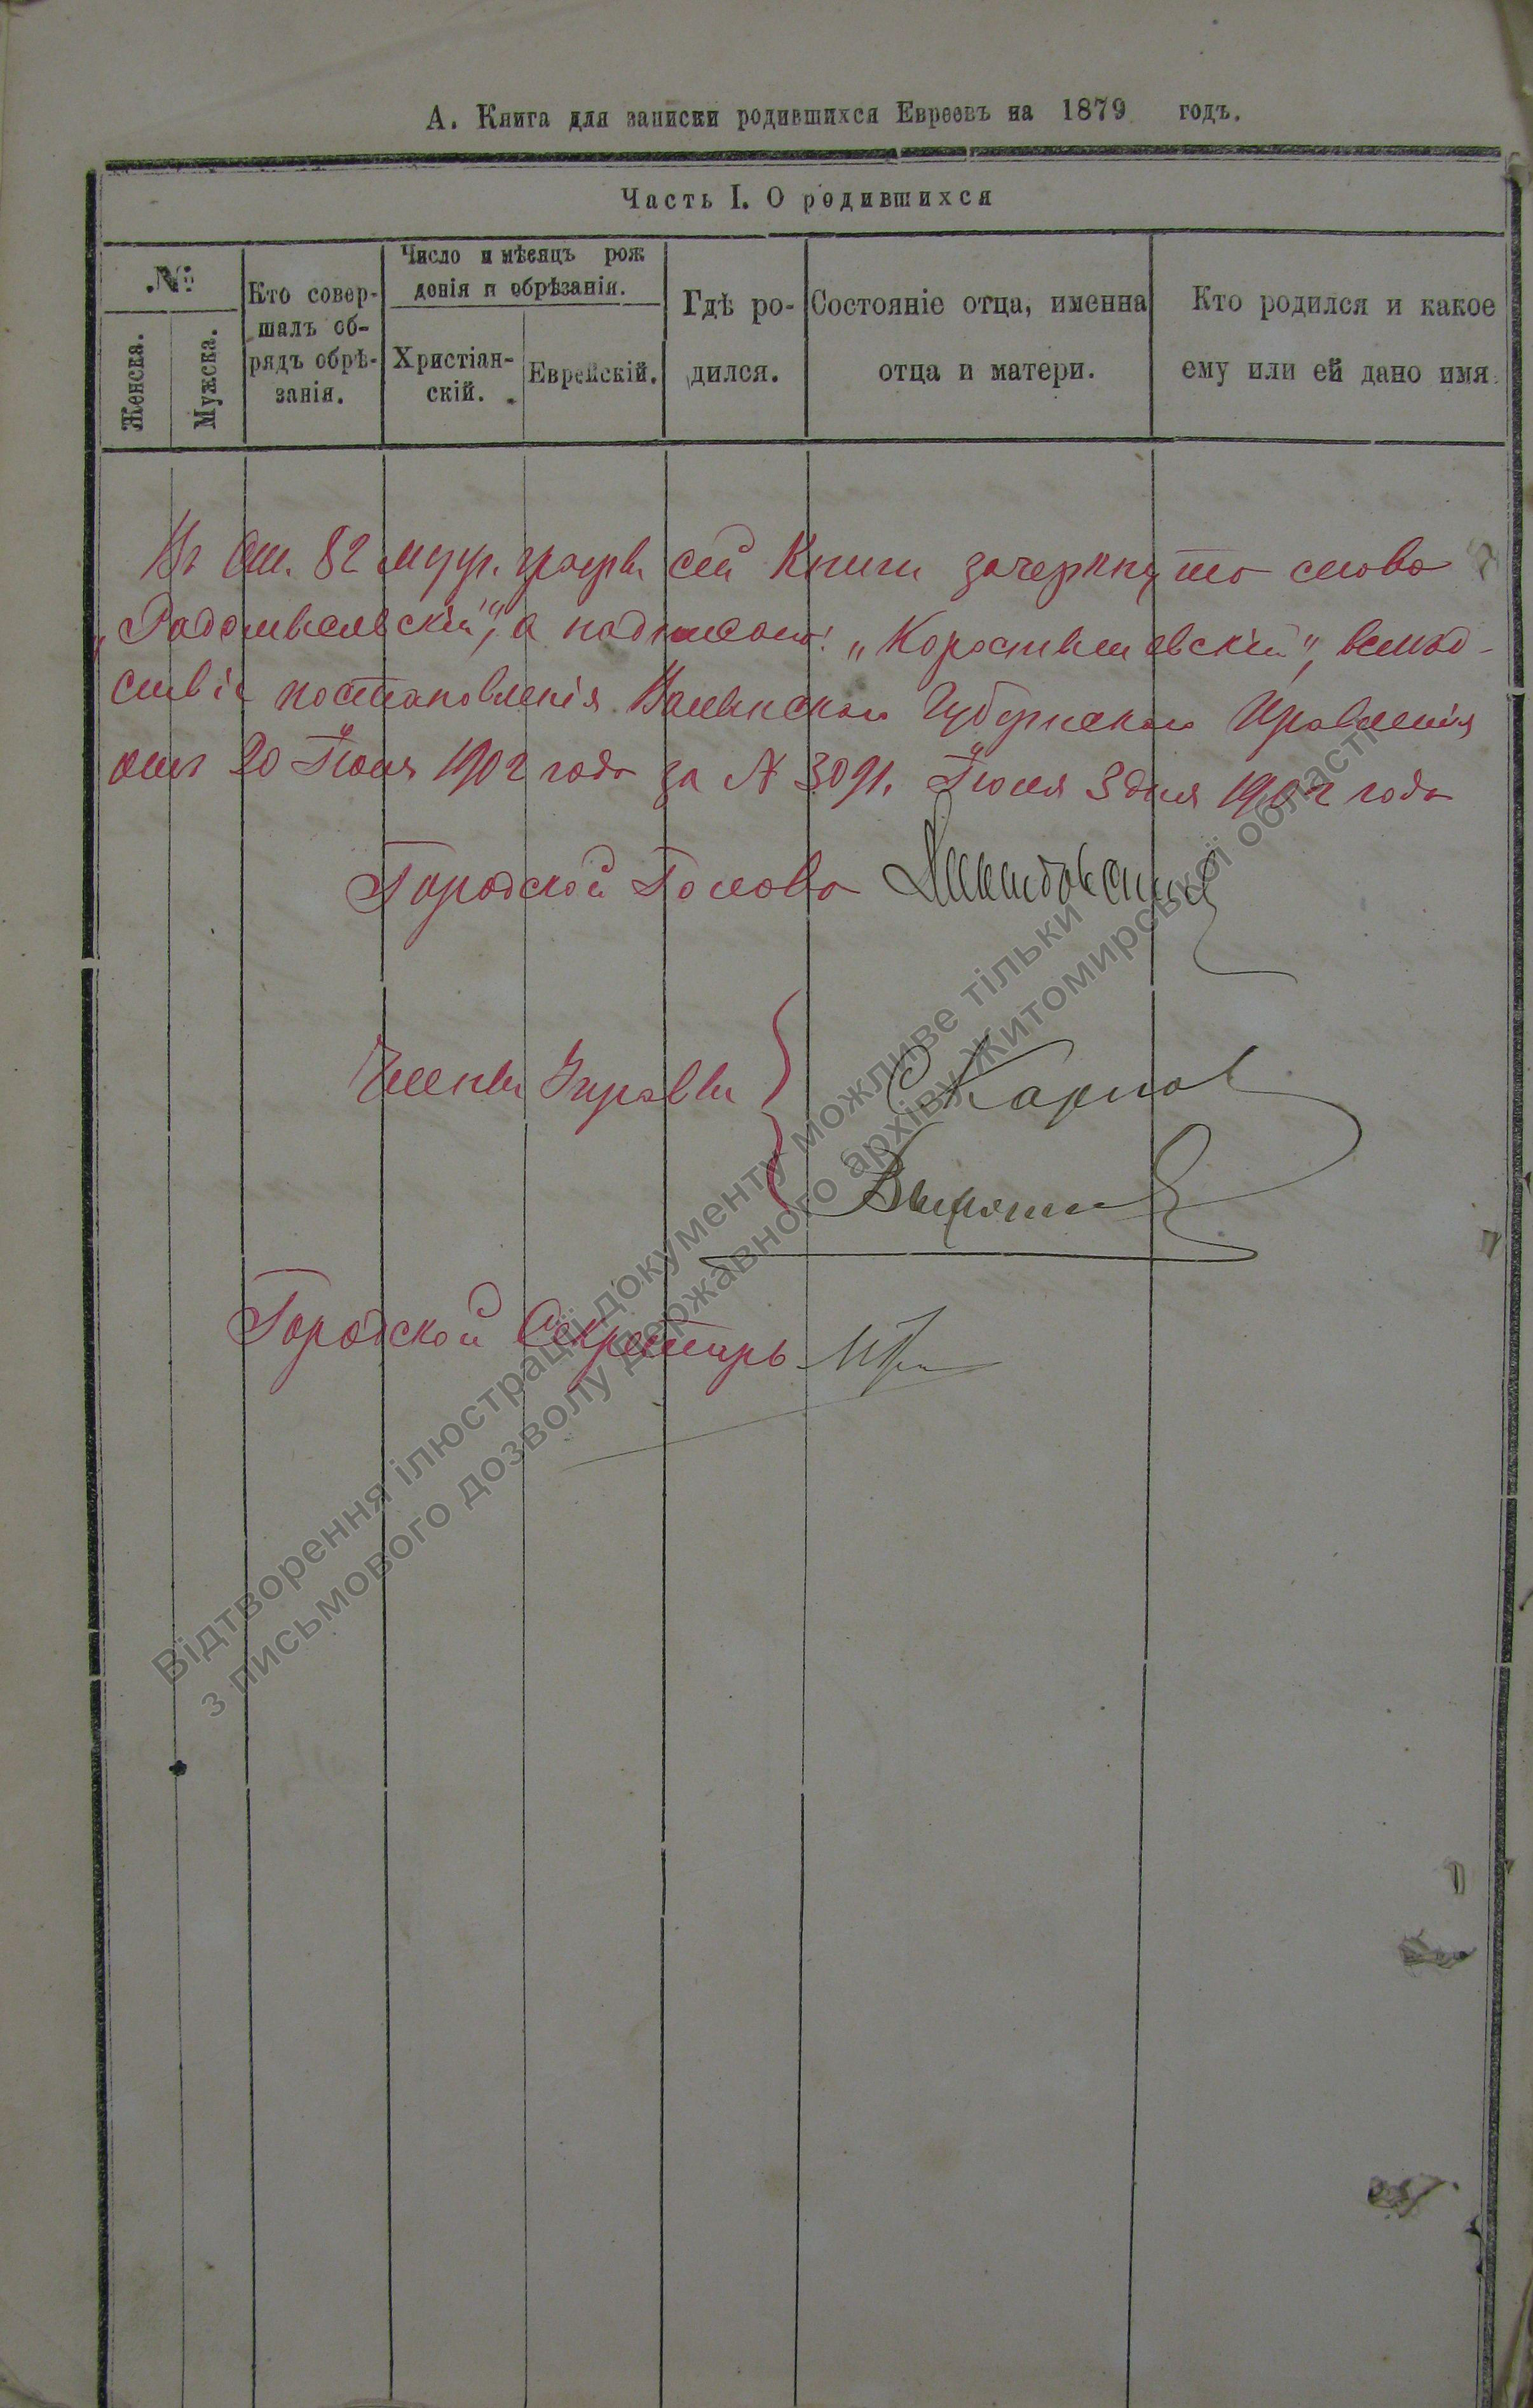 А. Книга для записки родившихся Евреевъ на 1879 годъ.
Часть I. О родившихся
№
Женска.
Мужска.
Кто совер-
шалъ об-
рядъ обрѣ-
занія.
Число и мѣсяцъ рож
денія и обрѣзанія.
Христіан-
скій.
Еврейскій.
Гдѣ ро-
дился.
Состояніе отца, именна
отца и матери.
Кто родился и какое
ему или ей дано имя.
Въ ст. 82 муж. графы сей Книги зачеркнуто слово
„Радомысльскій", а надписано: „Коростышевскій", вслѣд-
ствіе постановленія Волынскаго Губернскаго Правленія
отъ 20 Іюня 1902 года за № 3091. Іюля 3 дня 1902 года
Городской Голова
Члены Управы
Карпов
Городской Секретарь
Відтворення ілюстрації документу можливе тільки
з письмового дозволу Державного архіву Житомирської області